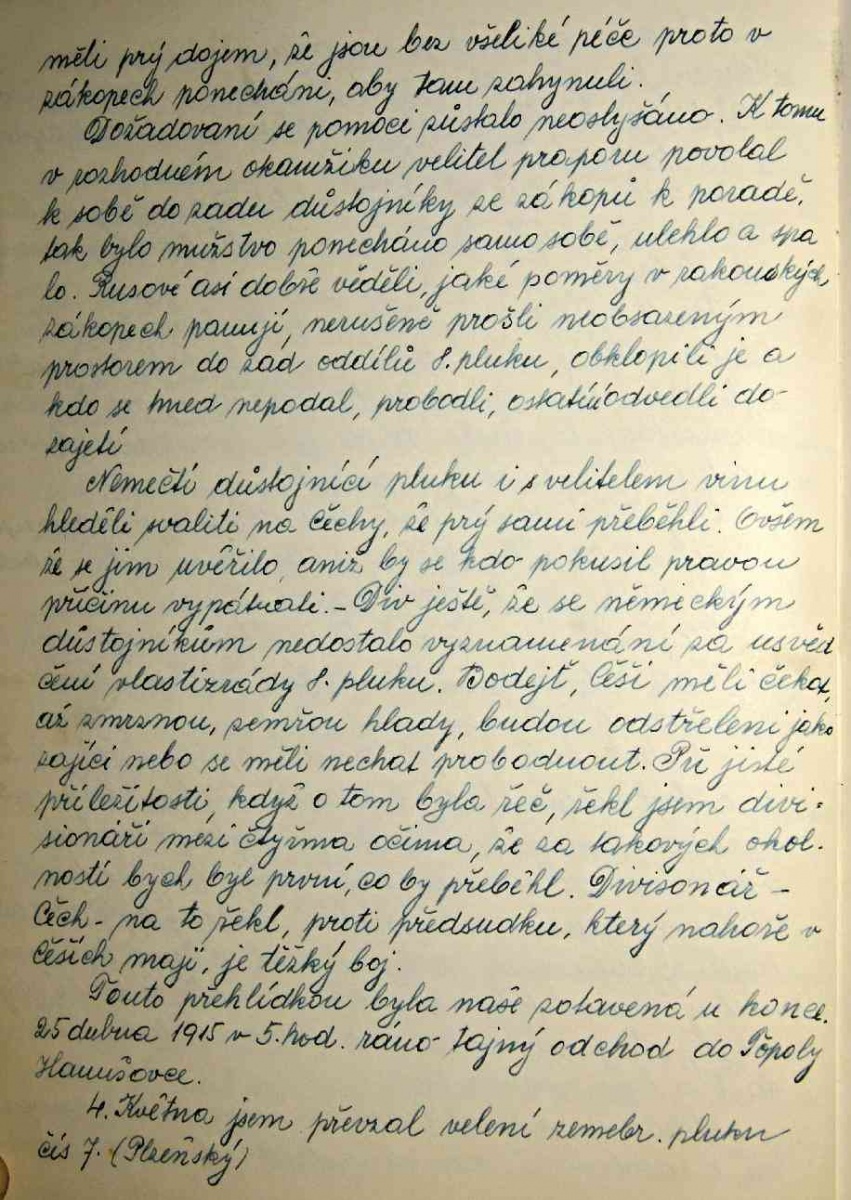 měli prý dojem, že jsou bez všeliké péče proto v
zákopech ponecháni, aby tam zahynuli.
Dožadovaní se pomoci zůstalo neoslyšáno. K tomu
v rozhodném okamžiku velitel praporu povolal
k sobě do zadu důstojníky ze zákopů k poradě,
tak bylo mužstvo ponecháno samo sobě, ulehlo a spa
lo. Rusové asi dobře věděli, jaké poměry v rakouských
zákopech panují, nerušeně prošli neobsazeným
prostorem do zad oddílů 8. pluku, obklopili je a
kdo se hned nepodal, probodli, ostatní odvedli do
zajetí
Němečtí důstojníci pluku i s velitelem vinu
hleděli svaliti na Čechy, že prý sami přeběhli. Ovšem
že se jim uvěřilo, aniž by se kdo pokusil pravou
příčinu vypátrati. - Div ještě, že se německým
důstojníkům nedostalo vyznamenání za usvěd
čení vlastizrády 8. pluku. Bodejť, Češi měli čekat,
až zmrznou, zemřou hlady, budou odstřeleni jako
zajíci nebo se měli nechat probodnout. Při jisté
příležitosti, když o tom byla řeč, řekl jsem divi-
sionáři mezi čtyřma očima, že za takových okol-
ností bych byl první, co by přeběhl. Divisonář -
Čech - na to řekl, proti předsudku, který nahoře v
Češích mají, je těžký boj.
Touto přehlídkou byla naše zotavená u konce.
25 dubna 1915 v 5. hod. ráno tajný odchod do Töpoly
Hanušovce.
4. Května jsem převzal velení zemebr. pluku
čís 7. (Plzeňský)